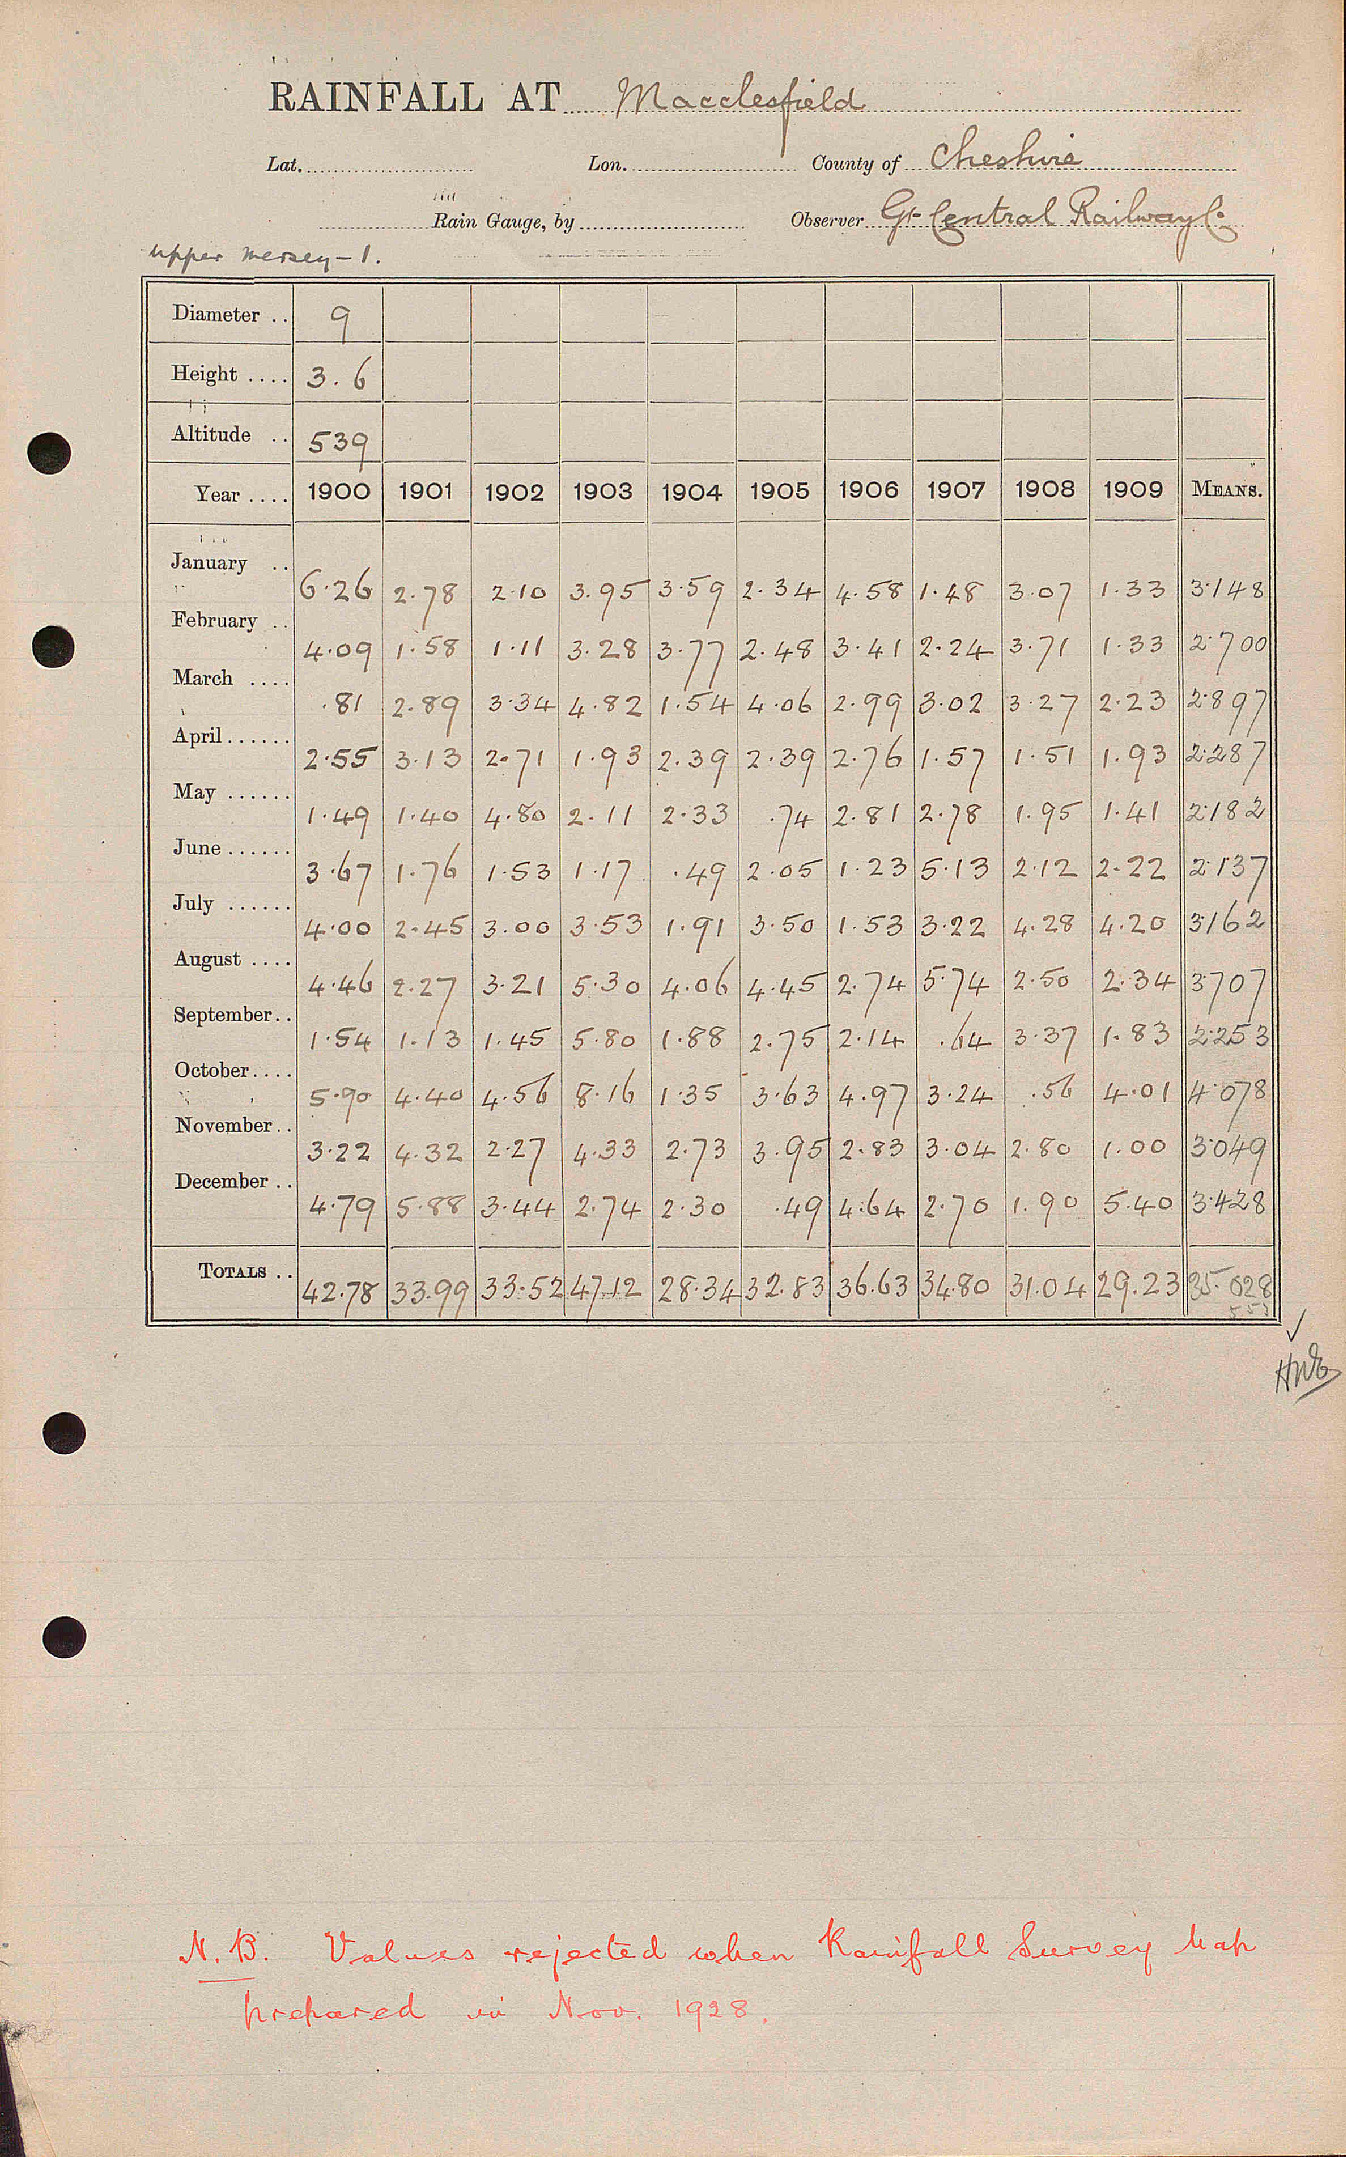 RAINFALL AT Macclesfield
Lat. Lon. County of Cheshire
Rain Gauge, by Observer Gt Central Railway Co.
Upper Mersey - 1.
Diameter .. 9
Height .... 3.6
Altitude .. 539
Year .... 1900 1901 1902 1903 1904 1905 1906 1907 1908 1909 MEANS.
January .. 6.26 2.78 2.10 3.95 3.59 2.34 4.58 1.48 3.07 1.33 3.148
February .. 4.09 1.58 1.11 3.28 3.77 2.48 3.41 2.24 3.71 1.33 2.700
March .... .81 2.89 3.34 4.82 1.54 4.06 2.99 3.02 3.27 2.23 2.897
April...... 2.55 3.13 2.71 1.93 2.39 2.39 2.76 1.57 1.51 1.93 2.287
May ...... 1.49 1.40 4.80 2.11 2.33 .74 2.81 2.78 1.95 1.41 2.182
June ...... 3.67 1.76 1.53 1.17 .49 2.05 1.23 5.13 2.12 2.22 2.137
July ...... 4.00 2.45 3.00 3.53 1.91 3.50 1.53 3.22 4.28 4.20 3.162
August .... 4.46 2.27 3.21 5.30 4.06 4.45 2.74 5.74 2.50 2.34 3.707
September.. 1.54 1.13 1.45 5.80 1.88 2.75 2.14 .64 3.37 1.83 2.253
October.... 5.90 4.40 4.56 8.16 1.35 3.63 4.97 3.24 .56 4.01 4.078
November.. 3.22 4.32 2.27 4.33 2.73 3.95 2.83 3.04 2.80 1.00 3.049
December .. 4.79 5.88 3.44 2.74 2.30 .49 4.64 2.70 1.90 5.40 3.428
TOTALS .. 42.78 33.99 33.52 47.12 28.34 32.83 36.63 34.80 31.04 29.23 35.028
N.B. Values rejected when Rainfall Survey Map
prepared in Nov. 1928.